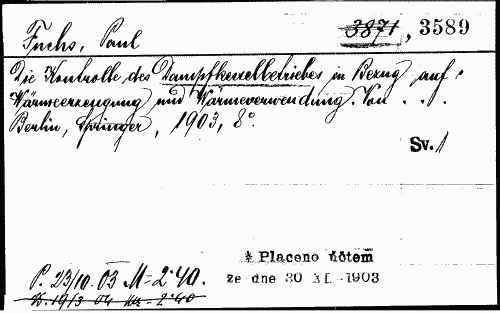 Fuchs, Paul
3871, 3589
Die Kontrolle des Dampfkesselbetriebes in Bezug auf
Wärmeerzeugung und Wärmeverwendung. Von . . .
Berlin, Springer, 1903, 8°.
Sv. 1
Placeno účtem
P. 23/10 03 M=2·40.
ze dne 30 XI. 1903
19/3 04 M=2·40